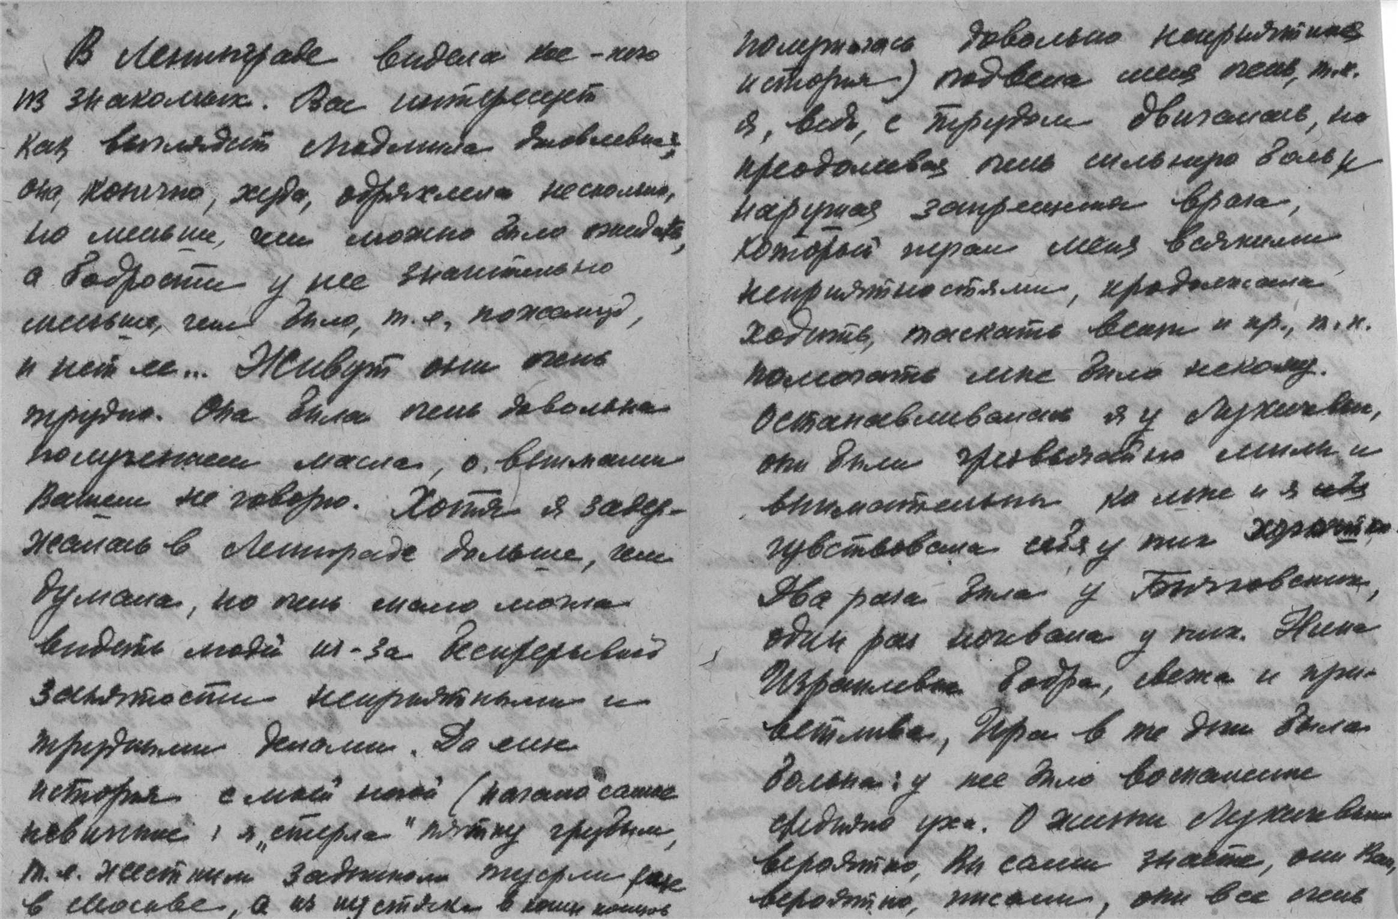 В Ленинграде видела кое-кого
из знакомых. Вас интересует
как выглядит Людмила Яковлевна;
она, конечно, худа, одряхлела несколько,
но меньше, чем можно было ожидать,
а бодрости у нее значительно
меньше, чем было, т.е., пожалуй,
и нет ее... Живут они очень
трудно. Она была очень довольна
получением масла, о внимании
Вашем не говорю. Хотя я задер-
жалась в Ленинграде дольше, чем
думала, но очень мало могла
видеть людей из-за беспрерывной
занятости неприятными и
трудными делами. Да еще
история с моей ногой (начало самое
невинное: я „стерла" пятку грубым,
т.е. жестким задником туфли еще
в Москве, а из пустяка в конце концов
получилась довольно неприятная
история) подвела меня очень, т.к.
я, ведь, с трудом двигалась, но
преодолевая очень сильную боль и
нарушая запрещения врача,
который пугал меня всякими
неприятностями, продолжала
ходить, таскать вещи и пр., т.к.
помогать мне было некому.
Останавливалась я у
они были чрезвычайно милы и
внимательны ко мне и я
чувствовала себя у них хорошо.
Два раза была у
один раз ночевала у них. Нина
Израилевна бодра, свежа и при-
ветлива, Ира в те дни была
больна: у нее было воспаление
среднего уха. О жизни
вероятно, Вы сами знаете, они Вам,
вероятно, писали, они все очень